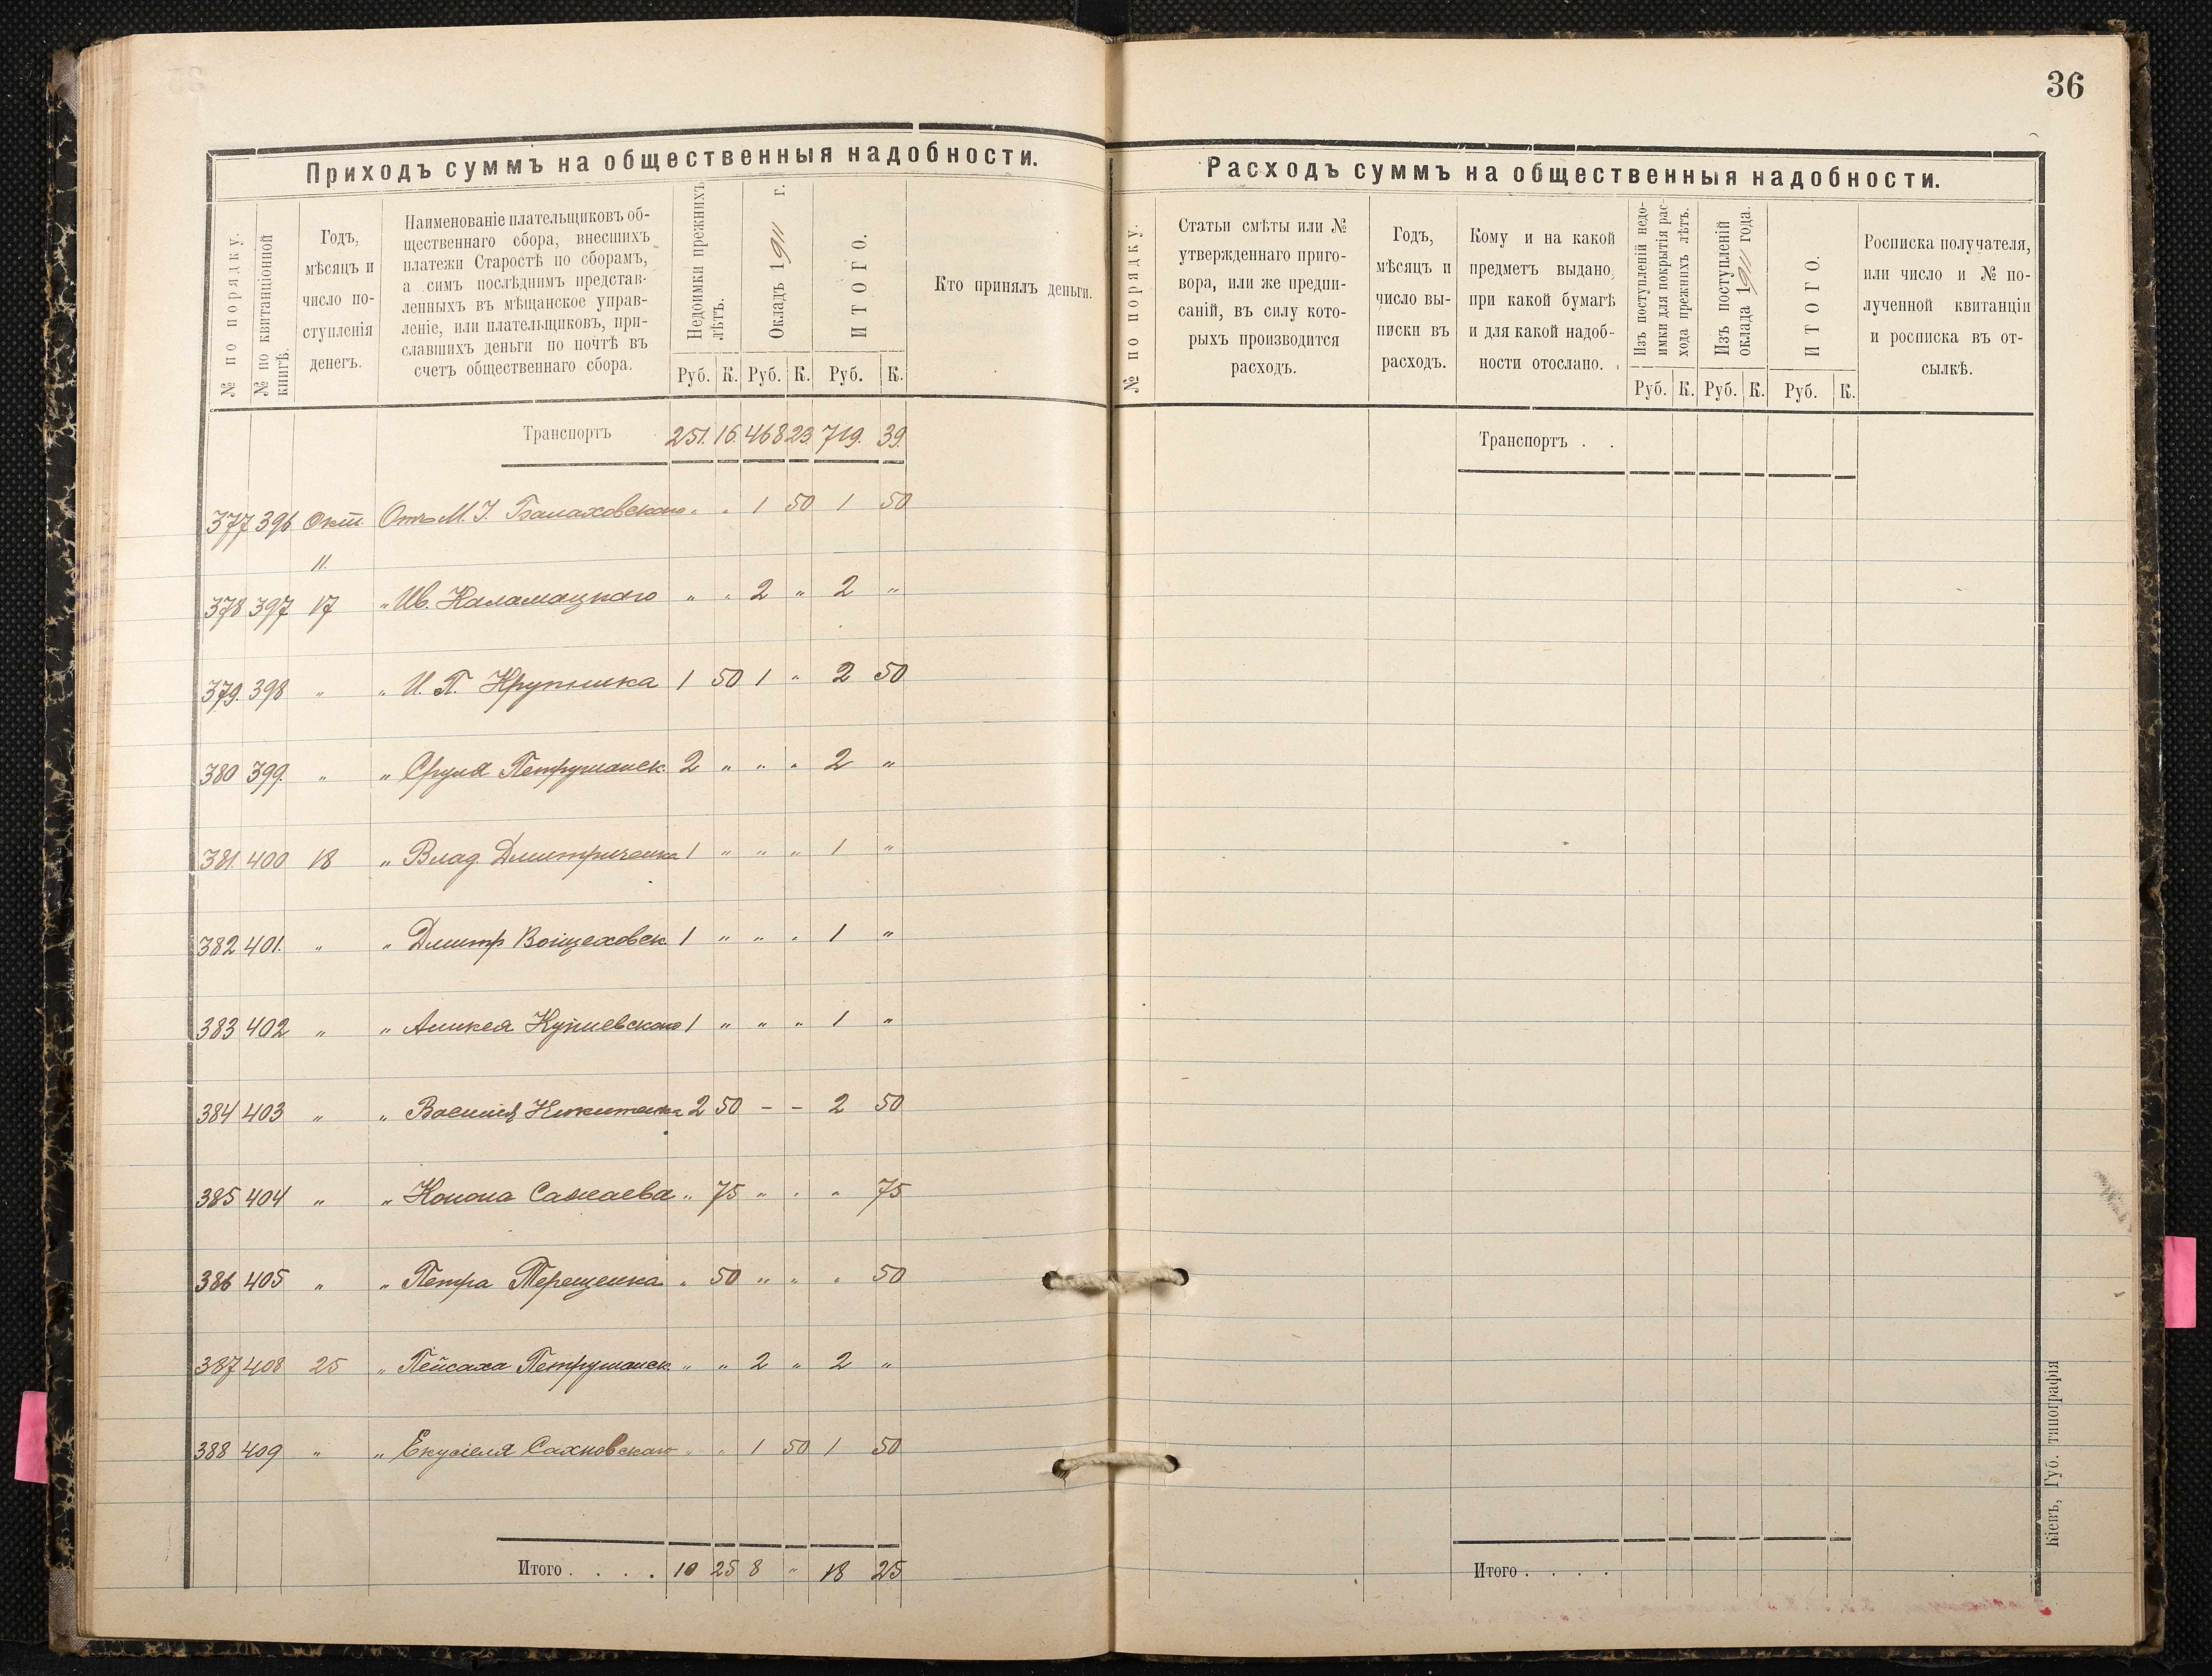 36
Приходъ суммъ на общественныя надобности.
№ по порядку.
№ по квитанціонной книгѣ.
Годъ,
мѣсяцъ и
число по-
ступленія
денегъ.
Наименованіе плательщиковъ об-
щественнаго сбора, внесшихъ
платежи Старостѣ по сборамъ,
а симъ послѣднимъ представ-
ленныхъ въ мѣщанское управ-
леніе, или плательщиковъ, при-
славшихъ деньги по почтѣ въ
счетъ общественнаго сбора.
Недоимки прежнихъ
лѣтъ.
Окладъ 1911 г.
ИТОГО.
Руб. К. Руб. К. Руб. К.
Кто принялъ деньги.
Транспортъ 251. 16. 468 23. 719. 39.
377 396 Окт. Отъ М. І. Балаховскаго " " 1 50 1 50
11.
378 397 17 " Ив. Каламацкаго " " 2 " 2 "
379. 398 " " И. П. Крупника 1 50 1 " 2 50
380 399. " " Сруля Петрушанск. 2 " " " 2 "
381. 400 18 " Влад. Дмитриченка 1 " " " 1 "
382 401. " " Дмитр Войцеховск. 1 " " " 1 "
383 402 " " 1 " " " 1 "
384 403 " " Василія Никитенка 2 50 - - 2 50
385 404 " " Конона " 75 " " " 75
386 405 " " Петра Терещенка " 50 " " " 50
387 408 25 " Пейсаха Петрушанск. " " 2 " 2 "
388 409 " " Екусіеля Сахновскаго " " 1 50 1 50
Итого . . . . 10 25 8 " 18 25
Расходъ суммъ на общественныя надобности.
№ по порядку.
Статьи смѣты или №
утвержденнаго приго-
вора, или же предпи-
саній, въ силу кото-
рыхъ производится
расходъ.
Годъ,
мѣсяцъ и
число вы-
писки въ
расходъ.
Кому и на какой
предметъ выдано,
при какой бумагѣ
и для какой надоб-
ности отослано.
Изъ поступленій недо-
имки для покрытія рас-
хода прежнихъ лѣтъ.
Изъ поступленій
оклада 1911 года.
ИТОГО.
Руб. К. Руб. К. Руб. К.
Росписка получателя,
или число и № по-
лученной квитанціи
и росписка въ от-
сылкѣ.
Транспортъ . .
Итого . . . .
Кіевъ, Губ. типографія